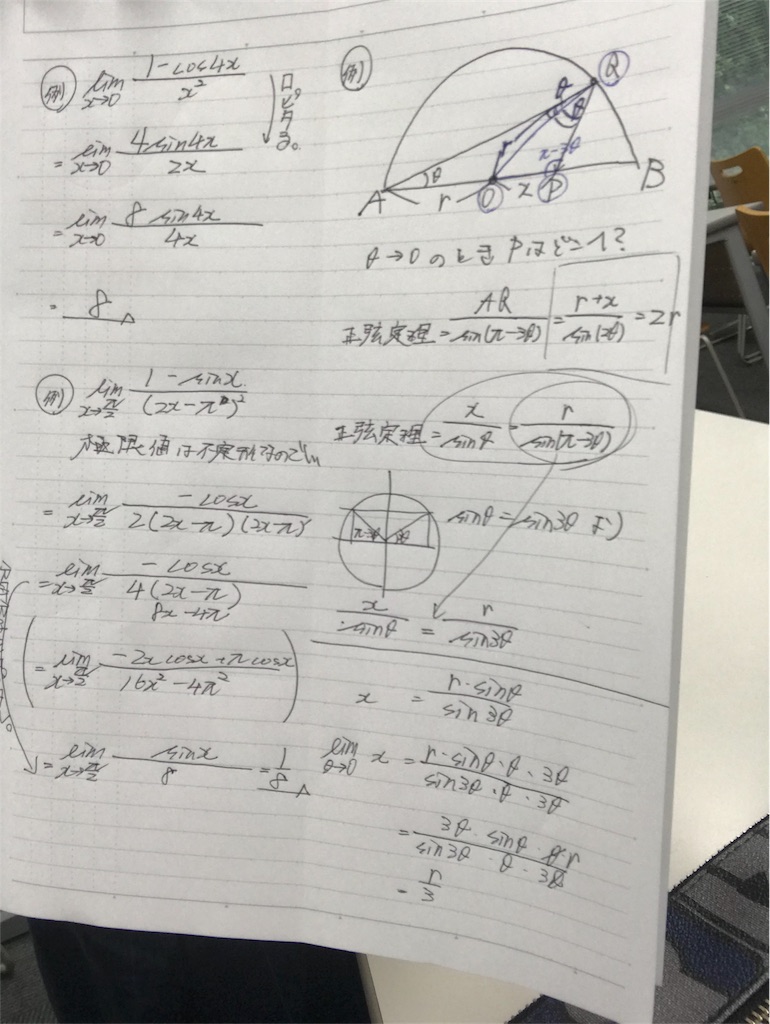 例 lim x→0 1-cos4x / x²
ロピタる。
= lim x→0 4sin4x / 2x
= lim x→0 8 sin4x / 4x
= 8
例 lim x→π/2 1-sinx / (2x-π)²
極限値は不定形なので
= lim x→π/2 -cosx / 2(2x-π)(2x-π)'
= lim x→π/2 -cosx / 4(2x-π)
8x-4π
(= lim x→π/2 -2xcosx+πcosx / 16x²-4π²)
= lim x→π/2 sinx / 8 = 1/8
例
A r O x P B Q θ θ θ r π-3θ
θ→0のときPはどこへ?
正弦定理 = AQ / sin(π-3θ) = r+x / sin(2θ) = 2r
正弦定理 = x / sinθ = r / sin(π-3θ)
π-3θ 3θ
sinθ = sin3θ より
x / sinθ = r / sin3θ
x = r·sinθ / sin3θ
lim θ→0 x = r·sinθ·θ·3θ / sin3θ·θ·3θ
= 3θ·sinθ·θ·r / sin3θ·θ·3θ
= r/3